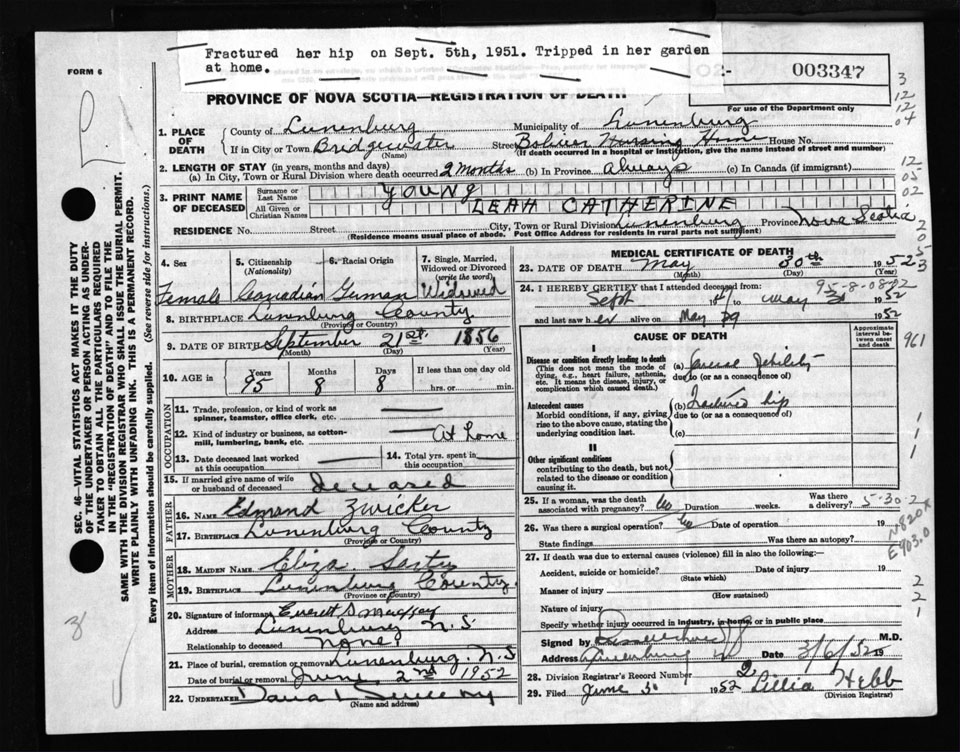 Fractured her hip on Sept. 5th, 1951. Tripped in her garden
at home.
FORM 6
02-
003347
PROVINCE OF NOVA SCOTIA—REGISTRATION OF DEATH
For use of the Department only
3
12
12
04
1. PLACE OF DEATH
County of Lunenburg Municipality of Lunenburg
If in City or Town Bridgewater Street Nursing Home House No.
(Name) (If death occurred in a hospital or institution, give the name instead of street and number)
2. LENGTH OF STAY (in years, months and days)
(a) In City, Town or Rural Division where death occurred 2 months (b) In Province always (c) In Canada (if immigrant)
12
05
02
3. PRINT NAME OF DECEASED
Surname or Last Name YOUNG
All Given or Christian Names LEAH CATHERINE
RESIDENCE No. Street City, Town or Rural Division Lunenburg Province Nova Scotia
(Residence means usual place of abode. Post Office Address for residents in rural parts not sufficient)
4. Sex 5. Citizenship (Nationality) 6. Racial Origin 7. Single, Married, Widowed or Divorced (write the word)
Female Canadian German Widowed
8. BIRTHPLACE Lunenburg County
(Province or Country)
9. DATE OF BIRTH September 21st. 1856
(Month) (Day) (Year)
10. AGE in Years Months Days If less than one day old
95 8 8 hrs. or min.
OCCUPATION
11. Trade, profession, or kind of work as spinner, teamster, office clerk, etc.
12. Kind of industry or business, as cotton-mill, lumbering, bank, etc. At home
13. Date deceased last worked at this occupation 14. Total yrs. spent in this occupation
15. If married give name of wife or husband of deceased deceased
FATHER
16. NAME Edmond Zwicker
17. BIRTHPLACE Lunenburg County
(Province or Country)
MOTHER
18. MAIDEN NAME Eliza
19. BIRTHPLACE Lunenburg County.
(Province or Country)
20. Signature of informant Everett D
Address Lunenburg N.S
Relationship to deceased none
21. Place of burial, cremation or removal Lunenburg. N.S
Date of burial or removal June 2nd 1952
22. UNDERTAKER
(Name and address)
MEDICAL CERTIFICATE OF DEATH
23. DATE OF DEATH May 30th 1952
(Month) (Day) (Year)
24. I HEREBY CERTIFY that I attended deceased from:
95-8-08-02
Sept to May 1952
and last saw her alive on May 29 1952
CAUSE OF DEATH
Approximate interval between onset and death
961
I
Disease or condition directly leading to death
(This does not mean the mode of dying, e.g., heart failure, asthenia, etc. It means the disease, injury, or complication which caused death.)
(a) Debility
due to (or as a consequence of)
Antecedent causes
Morbid conditions, if any, giving rise to the above cause, stating the underlying condition last.
(b) Fractured hip
due to (or as a consequence of)
(c)
II
Other significant conditions
contributing to the death, but not related to the disease or condition causing it.
1
1
1
25. If a woman, was the death associated with pregnancy? No Duration weeks. Was there a delivery?
5-30-2
26. Was there a surgical operation? No Date of operation 19
State findings Was there an autopsy?
N820X
E903.0
27. If death was due to external causes (violence) fill in also the following:—
Accident, suicide or homicide? Date of injury 19
(State which)
Manner of injury
(How sustained)
Nature of injury
Specify whether injury occurred in industry, in home, or in public place
2
2
1
Signed by M.D.
Address Lunenburg Date 3/6/52 19
28. Division Registrar's Record Number 2
29. Filed June 30 1952 Lillia Hebb
(Division Registrar)
SEC. 46—VITAL STATISTICS ACT MAKES IT THE DUTY
OF THE UNDERTAKER OR PERSON ACTING AS UNDER-
TAKER TO OBTAIN ALL THE PARTICULARS REQUIRED
IN THE "REGISTRATION OF DEATH" AND TO FILE THE
SAME WITH THE DIVISION REGISTRAR WHO SHALL ISSUE THE BURIAL PERMIT.
WRITE PLAINLY WITH UNFADING INK. THIS IS A PERMANENT RECORD.
Every item of information should be carefully supplied. (See reverse side for instructions.)